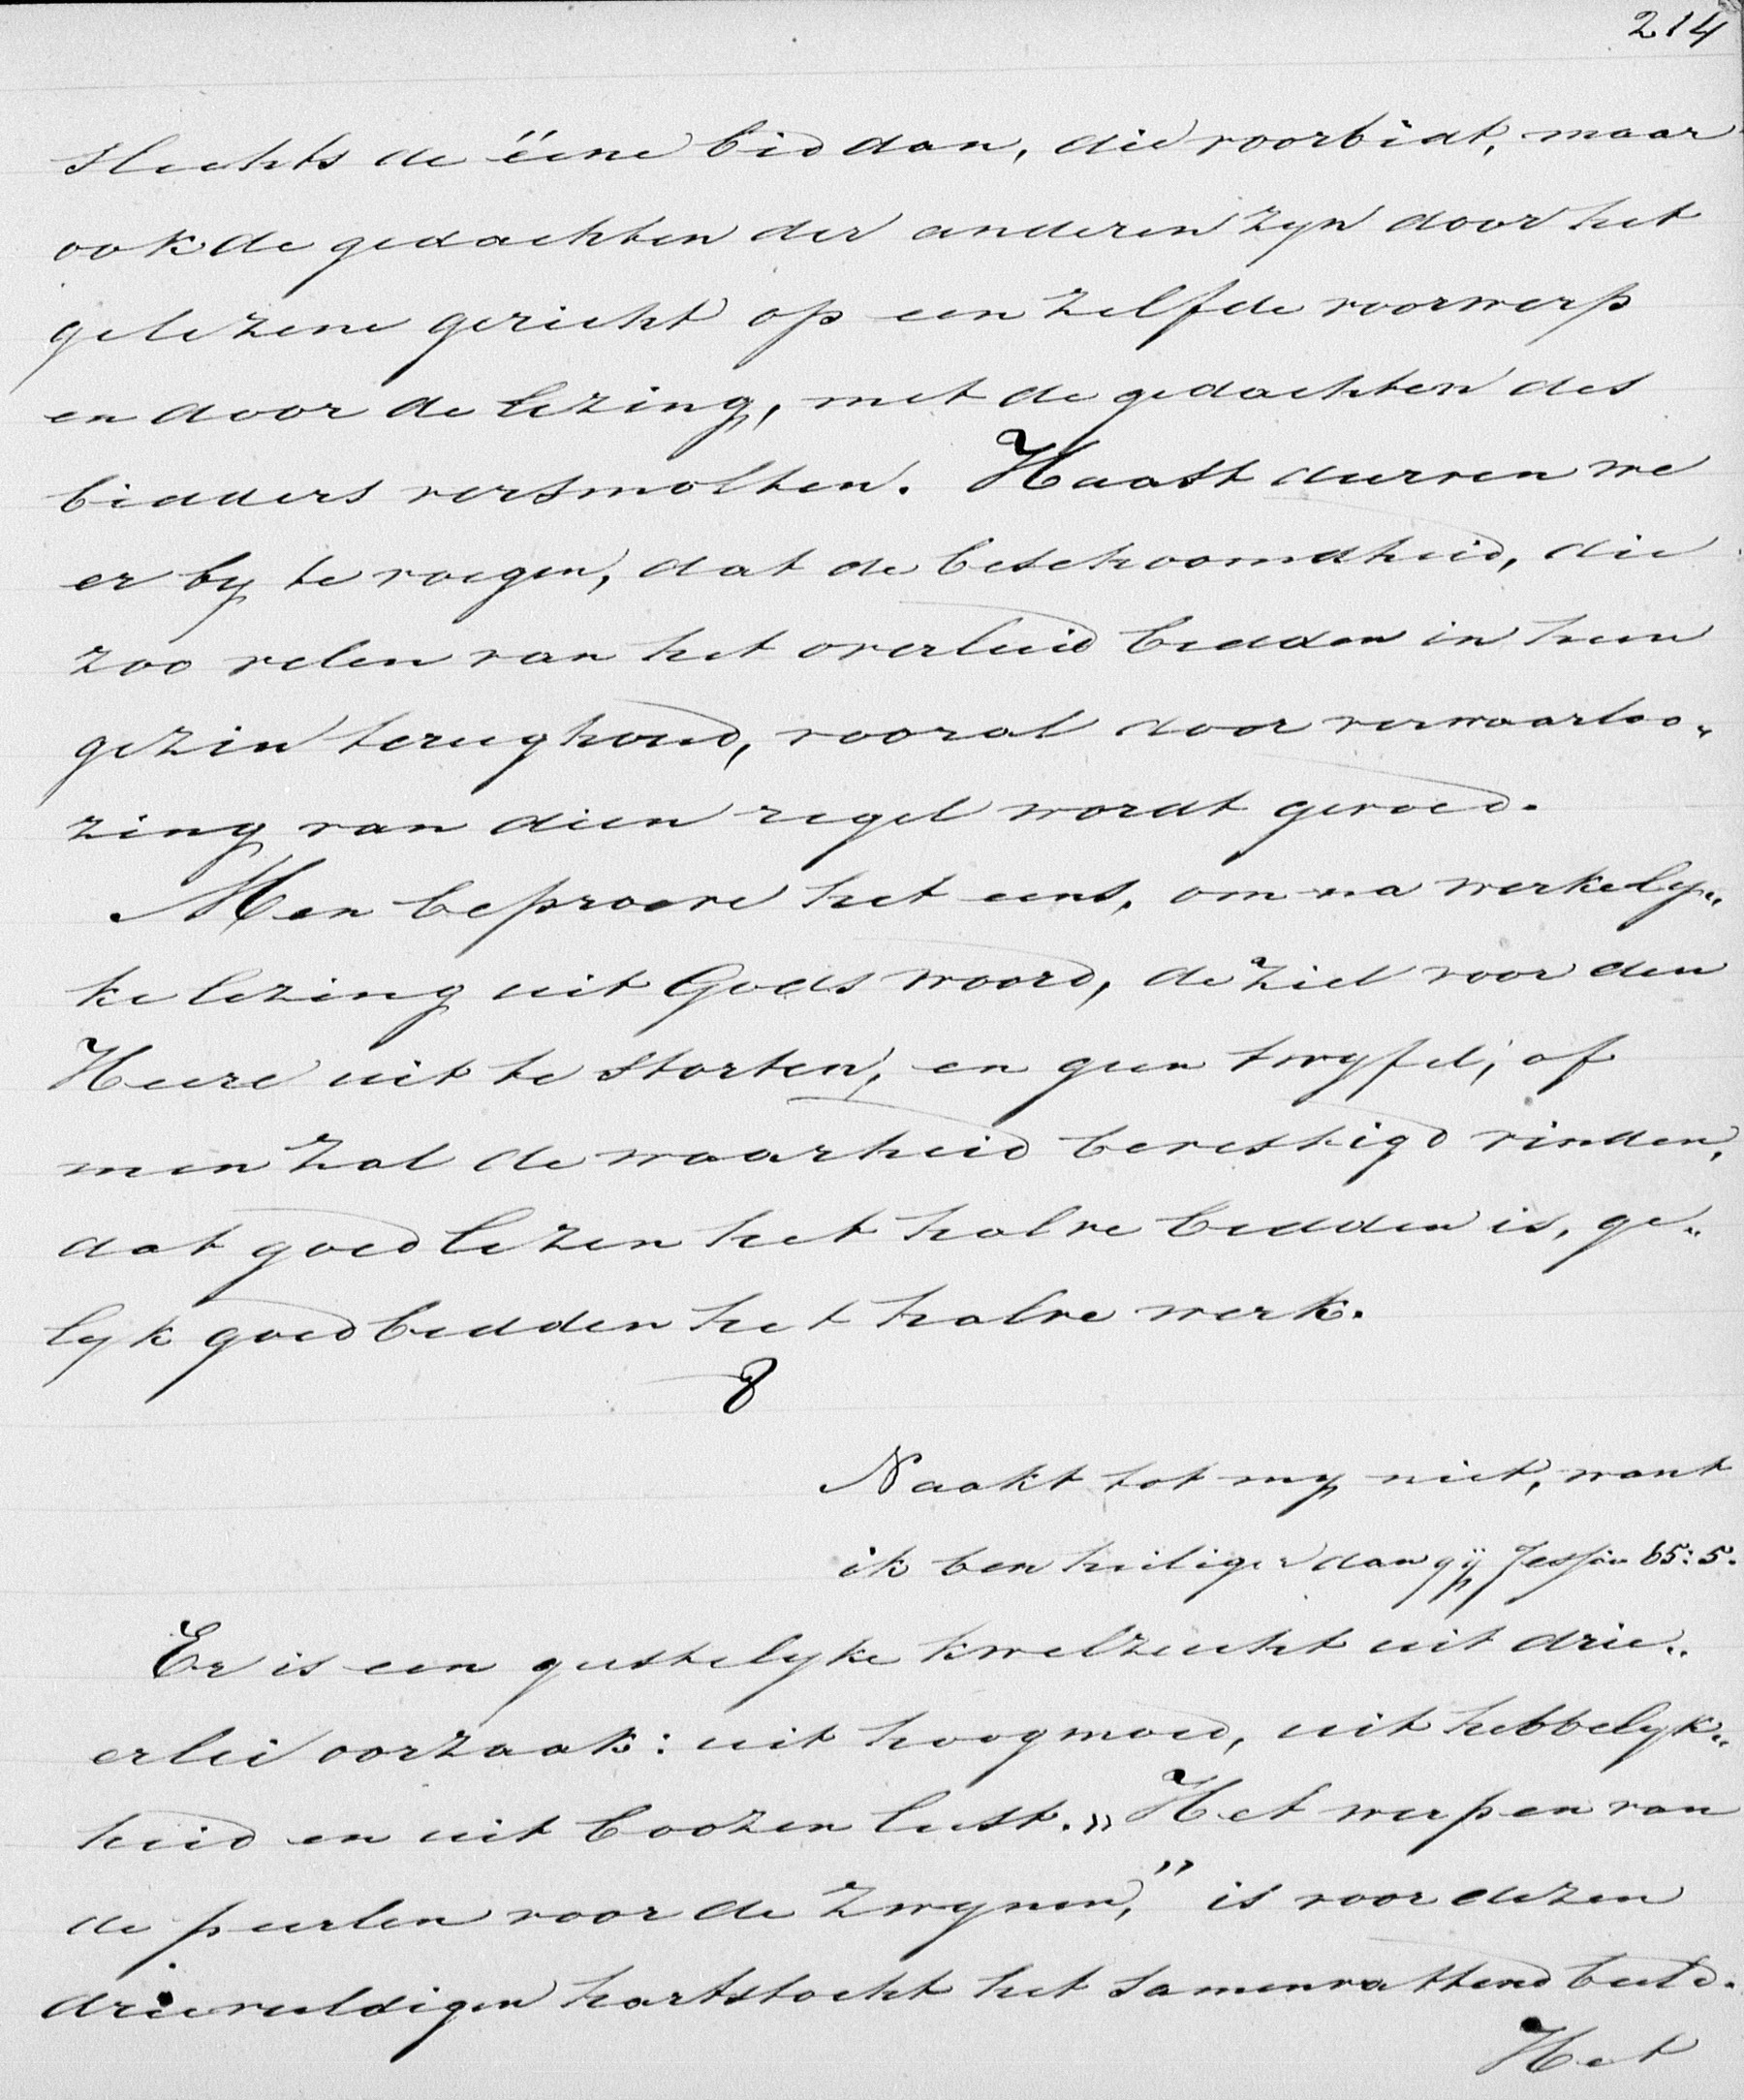 214
slechts de ééne bid dan, die voorbidt, maar
ook de gedachten der anderen zyn door het
gelezene gericht op een zelfde voorwerp
en door de lezing, met de gedachten des
bidders versmolten. Haast durven we
er by te voegen, dat de beschroomdheid, die
zoo velen van het overluid bidden in hun
gezin terughoud, vooral door verwaarloo„
zing van dien regel wordt gevoed.
Men beproeve het eens, om na werkely„
ke lezing uit Gods woord, de ziel voor den
Heere uit te storten, en geen twyfel, of
men zal de waarheid bevestigd vinden,
dat goed lezen het halve bidden is, ge„
lyk goed bidden het halve werk.
8
Naakt tot my niet, want
ik ben heiliger dan gij Jesaia 65:5.
Er is een geestelyke kwelzucht uit drie„
erlei oorzaak: uit hoogmoed, uit hebbelyk„
heid en uit boozen lust. „Het werpen van
de peerlen voor de zwynen," is voor dezen
drievuldigen hartstocht het samenvattend beeld.
Het